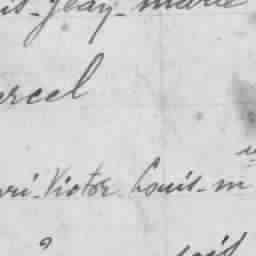 is-Jean-marie
arcel
nri-Victor Louis-m